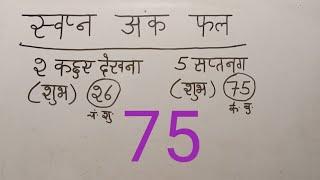 स्वप्न अंक फल
२ कद्दू देखना 5 सप्तनग
(शुभ) २६ (शुभ) 75
चं शु कें बु
75